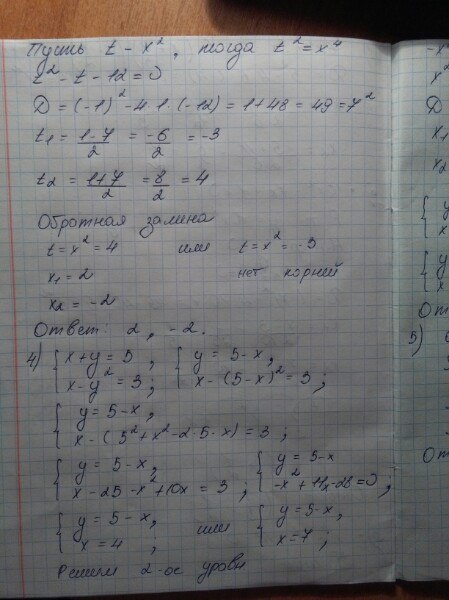 Пусть t - x², тогда t² = x⁴
t² - t - 12 = 0
D = (-1)² - 4·1·(-12) = 1+48 = 49 = 7²
t₁ = (1-7)/2 = -6/2 = -3
t₂ = (1+7)/2 = 8/2 = 4
Обротная замина
t = x² = 4 или t = x² = -3
x₁ = 2 нет корней
x₂ = -2
Ответ: 2, -2.
4) { x+y = 5, x-y² = 3; { y = 5-x, x - (5-x)² = 3;
{ y = 5-x, x - (5² + x² - 2·5-x) = 3;
{ y = 5-x, x - 25 - x² + 10x = 3; { y = 5-x -x² + 11x - 28 = 0,
{ y = 5-x, x = 4; или { y = 5-x, x = 7;
Решим 2-ое уровн
5)